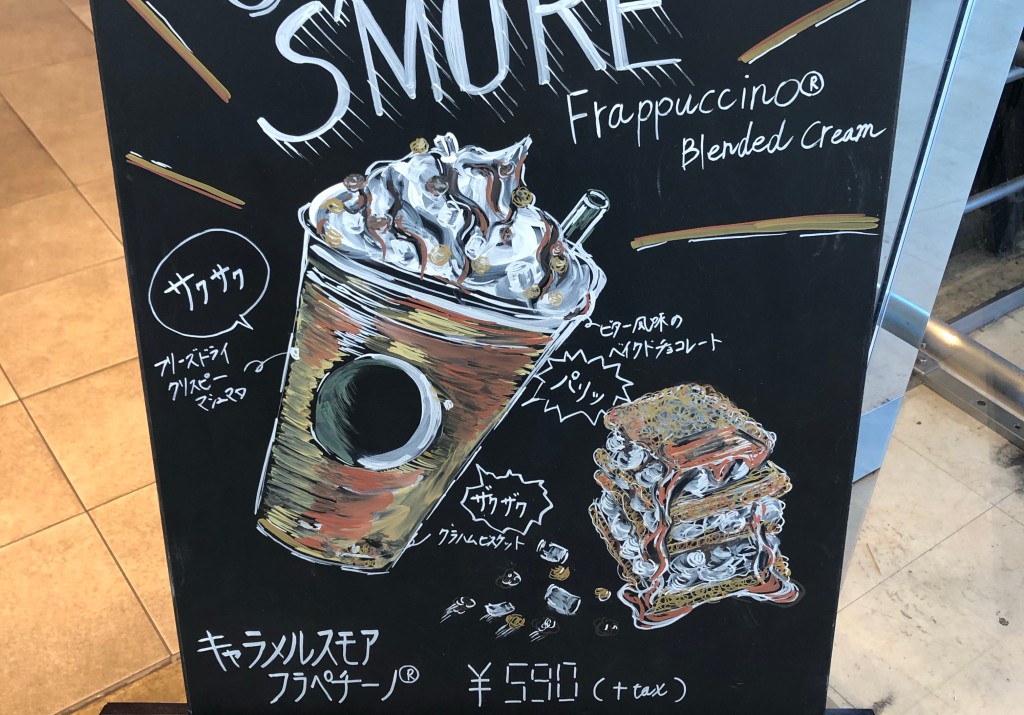 SMORE
Frappuccino®
Blended Cream
サクサク
フリーズドライ
クリスピー
マシュマロ
ビター風味の
ベイクドチョコレート
パリッ
ザクザク
グラハムビスケット
キャラメルスモア
フラペチーノ®
¥590 (+tax)